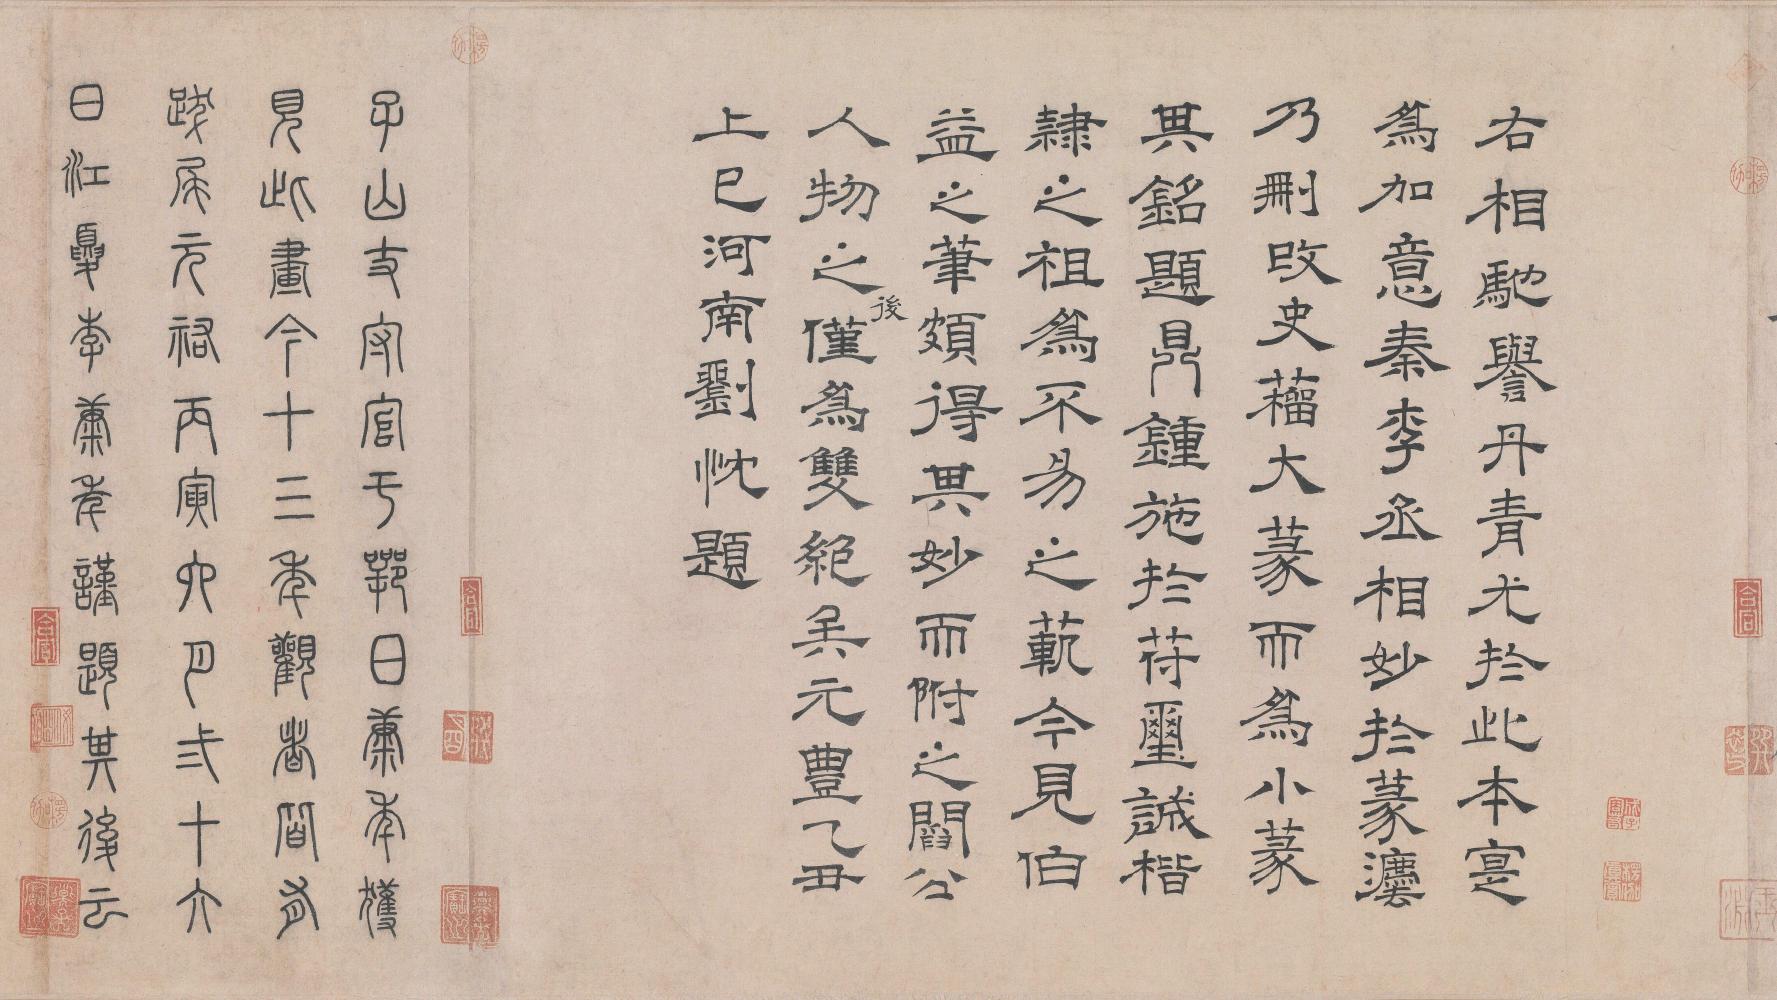 右相馳譽丹青尤於此本寔
爲加意秦李丞相妙於篆灋
乃刪改史籀大篆而爲小篆
其銘題鼎鍾施於符璽誠楷
隸之祖爲不易之範今見伯
益之筆頗得其妙而附之閻公
人物之後僅爲雙絕矣元豐乙丑
上巳河南劉忱題
子山丈守官于鄂日康年獲
見此畫今十三年觀者閒有
跋尾元祐丙寅六月弍十六
日江夏李康年謹題其後云